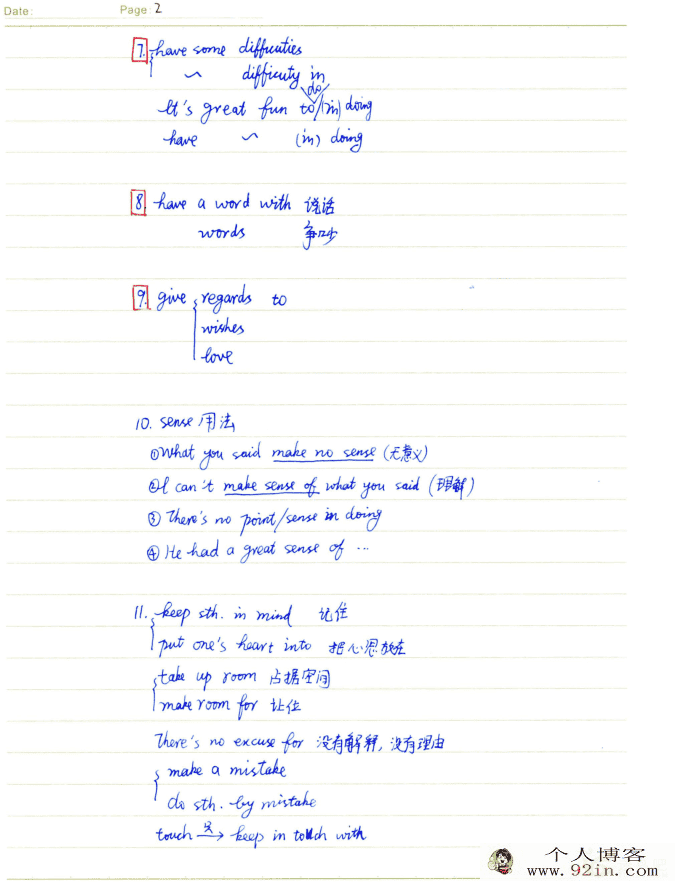 Date: Page: 2
7. have some difficuties
~ difficuty in
do
It's great fun to/(in) doing
have ~ (in) doing
8. have a word with 说话
words 争吵
9. give regards to
wishes
love
10. sense 用法
①What you said make no sense (无意义)
②I can't make sense of what you said (理解)
③ There's no point/sense in doing
④ He had a great sense of ...
11. keep sth. in mind 记住
put one's heart into 把心思放在
take up room 占据空间
make room for 让位
There's no excuse for 没有解释, 没有理由
make a mistake
do sth. by mistake
touch → keep in touch with
个人博客
www.92in.com